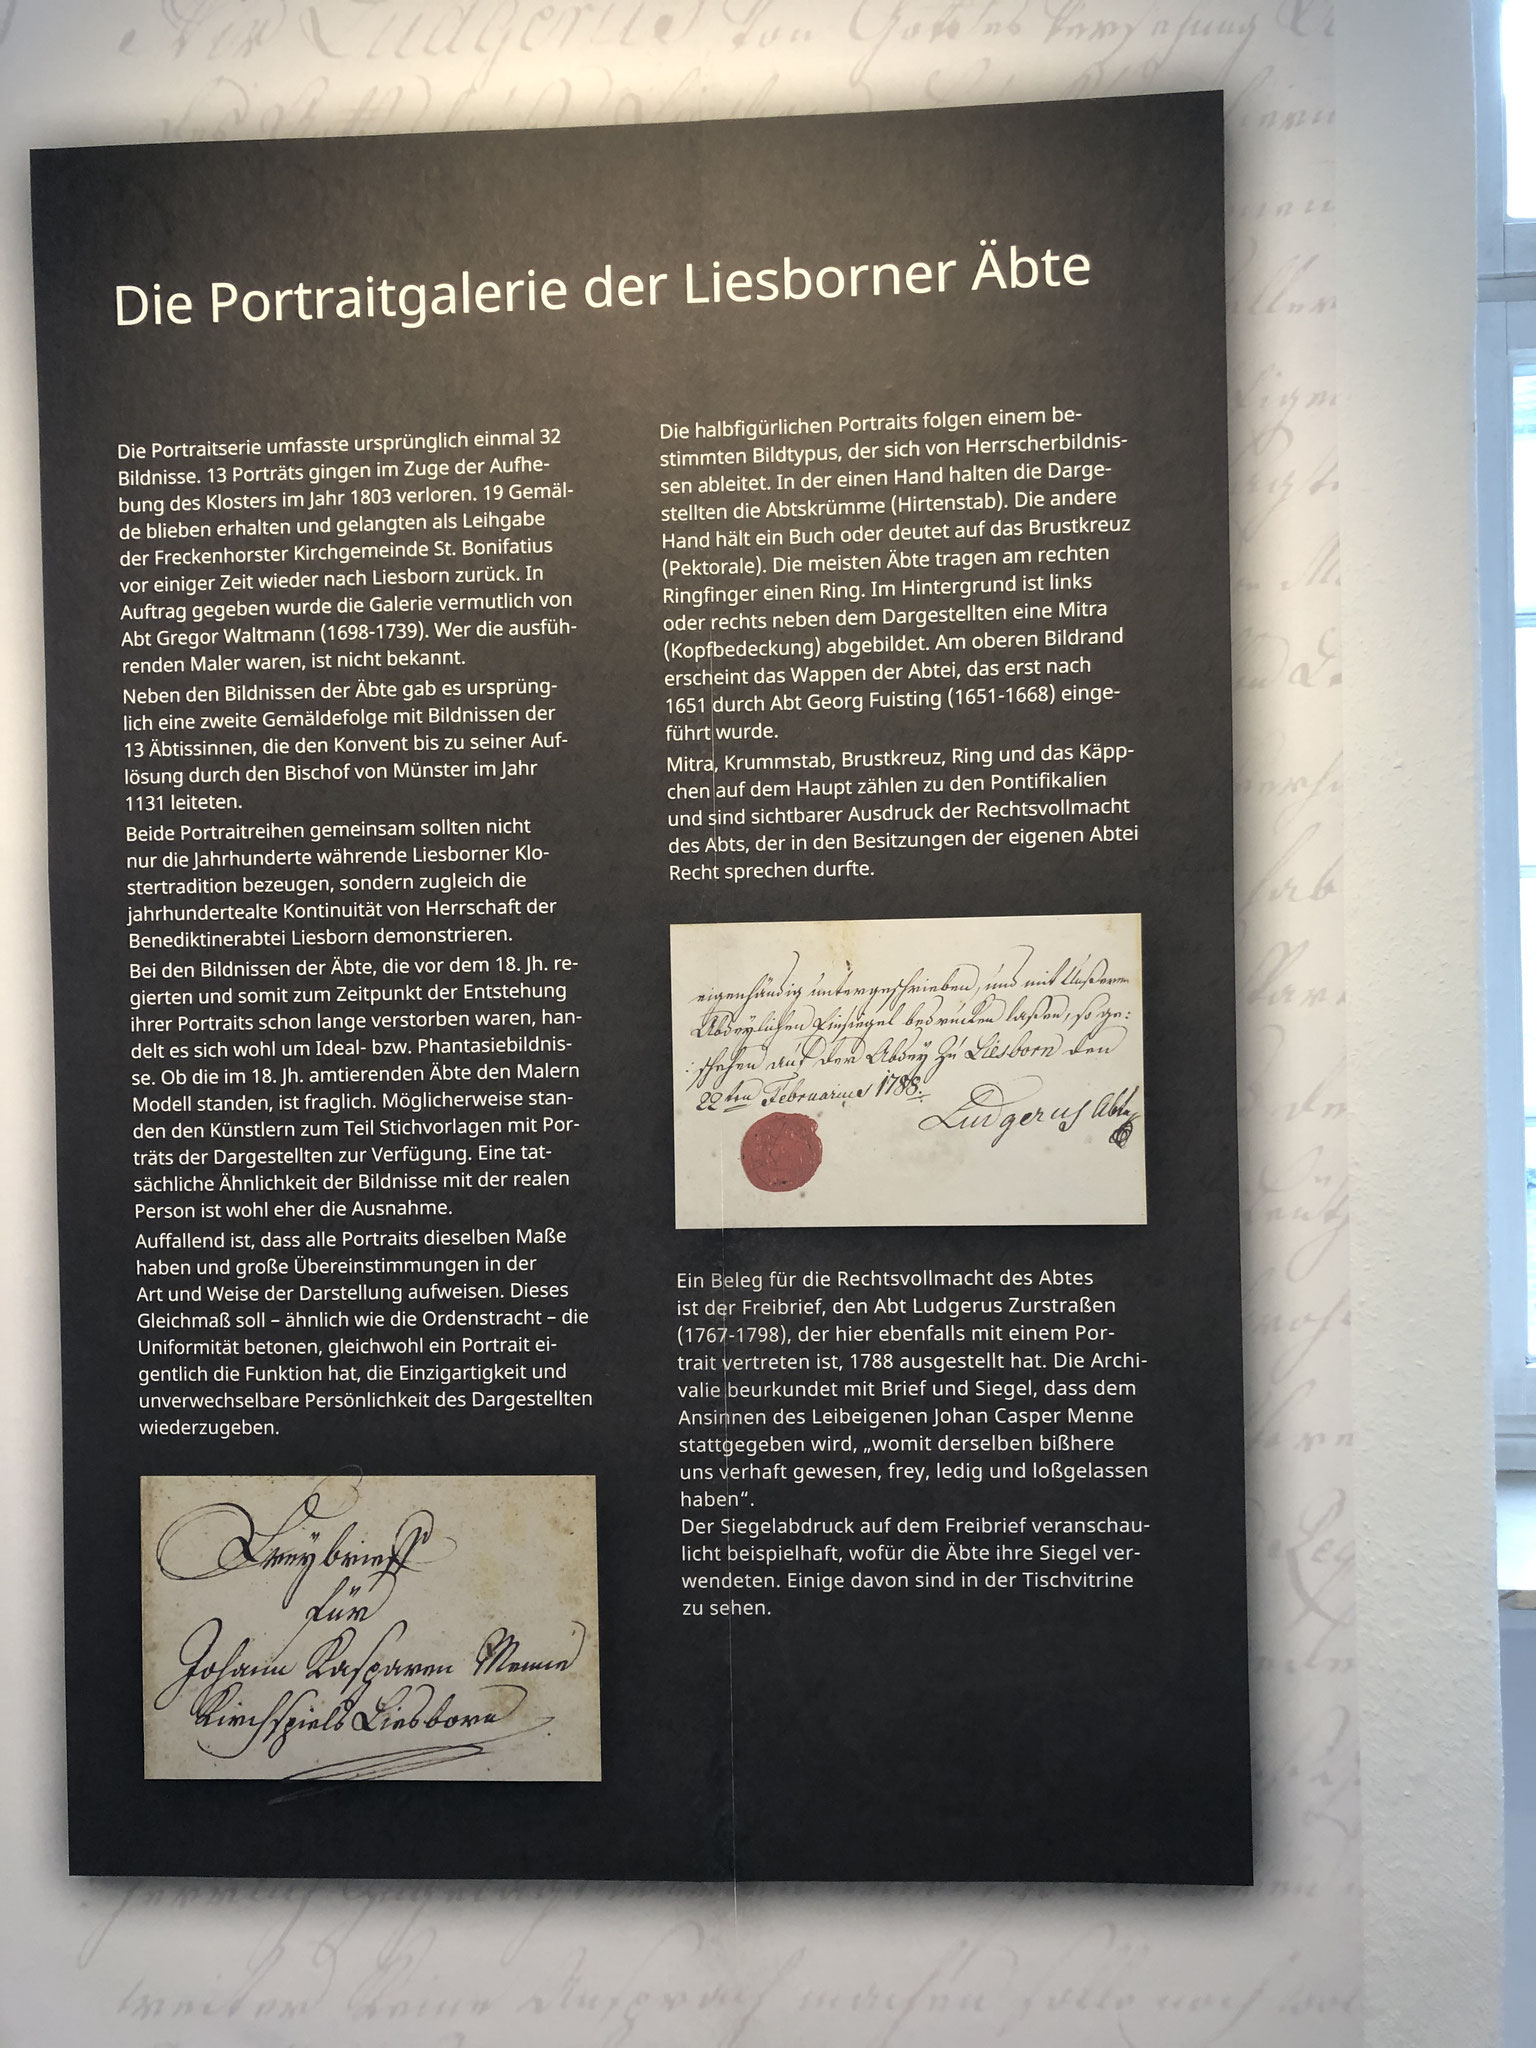 Die Portraitgalerie der Liesborner Äbte
Die Portraitserie umfasste ursprünglich einmal 32
Bildnisse. 13 Porträts gingen im Zuge der Aufhe-
bung des Klosters im Jahr 1803 verloren. 19 Gemäl-
de blieben erhalten und gelangten als Leihgabe
der Freckenhorster Kirchgemeinde St. Bonifatius
vor einiger Zeit wieder nach Liesborn zurück. In
Auftrag gegeben wurde die Galerie vermutlich von
Abt Gregor Waltmann (1698-1739). Wer die ausfüh-
renden Maler waren, ist nicht bekannt.
Neben den Bildnissen der Äbte gab es ursprüng-
lich eine zweite Gemäldefolge mit Bildnissen der
13 Äbtissinnen, die den Konvent bis zu seiner Auf-
lösung durch den Bischof von Münster im Jahr
1131 leiteten.
Beide Portraitreihen gemeinsam sollten nicht
nur die Jahrhunderte währende Liesborner Klo-
stertradition bezeugen, sondern zugleich die
jahrhundertealte Kontinuität von Herrschaft der
Benediktinerabtei Liesborn demonstrieren.
Bei den Bildnissen der Äbte, die vor dem 18. Jh. re-
gierten und somit zum Zeitpunkt der Entstehung
ihrer Portraits schon lange verstorben waren, han-
delt es sich wohl um Ideal- bzw. Phantasiebildnis-
se. Ob die im 18. Jh. amtierenden Äbte den Malern
Modell standen, ist fraglich. Möglicherweise stan-
den den Künstlern zum Teil Stichvorlagen mit Por-
träts der Dargestellten zur Verfügung. Eine tat-
sächliche Ähnlichkeit der Bildnisse mit der realen
Person ist wohl eher die Ausnahme.
Auffallend ist, dass alle Portraits dieselben Maße
haben und große Übereinstimmungen in der
Art und Weise der Darstellung aufweisen. Dieses
Gleichmaß soll – ähnlich wie die Ordenstracht – die
Uniformität betonen, gleichwohl ein Portrait ei-
gentlich die Funktion hat, die Einzigartigkeit und
unverwechselbare Persönlichkeit des Dargestellten
wiederzugeben.
Freybrieff
für
Johann Kasparen Menne
Kirchspiels Liesborn
Die halbfigürlichen Portraits folgen einem be-
stimmten Bildtypus, der sich von Herrscherbildnis-
sen ableitet. In der einen Hand halten die Darge-
stellten die Abtskrümme (Hirtenstab). Die andere
Hand hält ein Buch oder deutet auf das Brustkreuz
(Pektorale). Die meisten Äbte tragen am rechten
Ringfinger einen Ring. Im Hintergrund ist links
oder rechts neben dem Dargestellten eine Mitra
(Kopfbedeckung) abgebildet. Am oberen Bildrand
erscheint das Wappen der Abtei, das erst nach
1651 durch Abt Georg Fuisting (1651-1668) einge-
führt wurde.
Mitra, Krummstab, Brustkreuz, Ring und das Käpp-
chen auf dem Haupt zählen zu den Pontifikalien
und sind sichtbarer Ausdruck der Rechtsvollmacht
des Abts, der in den Besitzungen der eigenen Abtei
Recht sprechen durfte.
eigenhändig untergeschrieben, und mit Unßerem
Abdeylichen Einsiegel bedrucken laßen, so ge:
schehen auf der Abdey zu Liesborn den
22ten Februarius 1788.
Ludgerus Abt
Ein Beleg für die Rechtsvollmacht des Abtes
ist der Freibrief, den Abt Ludgerus Zurstraßen
(1767-1798), der hier ebenfalls mit einem Por-
trait vertreten ist, 1788 ausgestellt hat. Die Archi-
valie beurkundet mit Brief und Siegel, dass dem
Ansinnen des Leibeigenen Johan Casper Menne
stattgegeben wird, „womit derselben bißhere
uns verhaft gewesen, frey, ledig und loßgelassen
haben“.
Der Siegelabdruck auf dem Freibrief veranschau-
licht beispielhaft, wofür die Äbte ihre Siegel ver-
wendeten. Einige davon sind in der Tischvitrine
zu sehen.